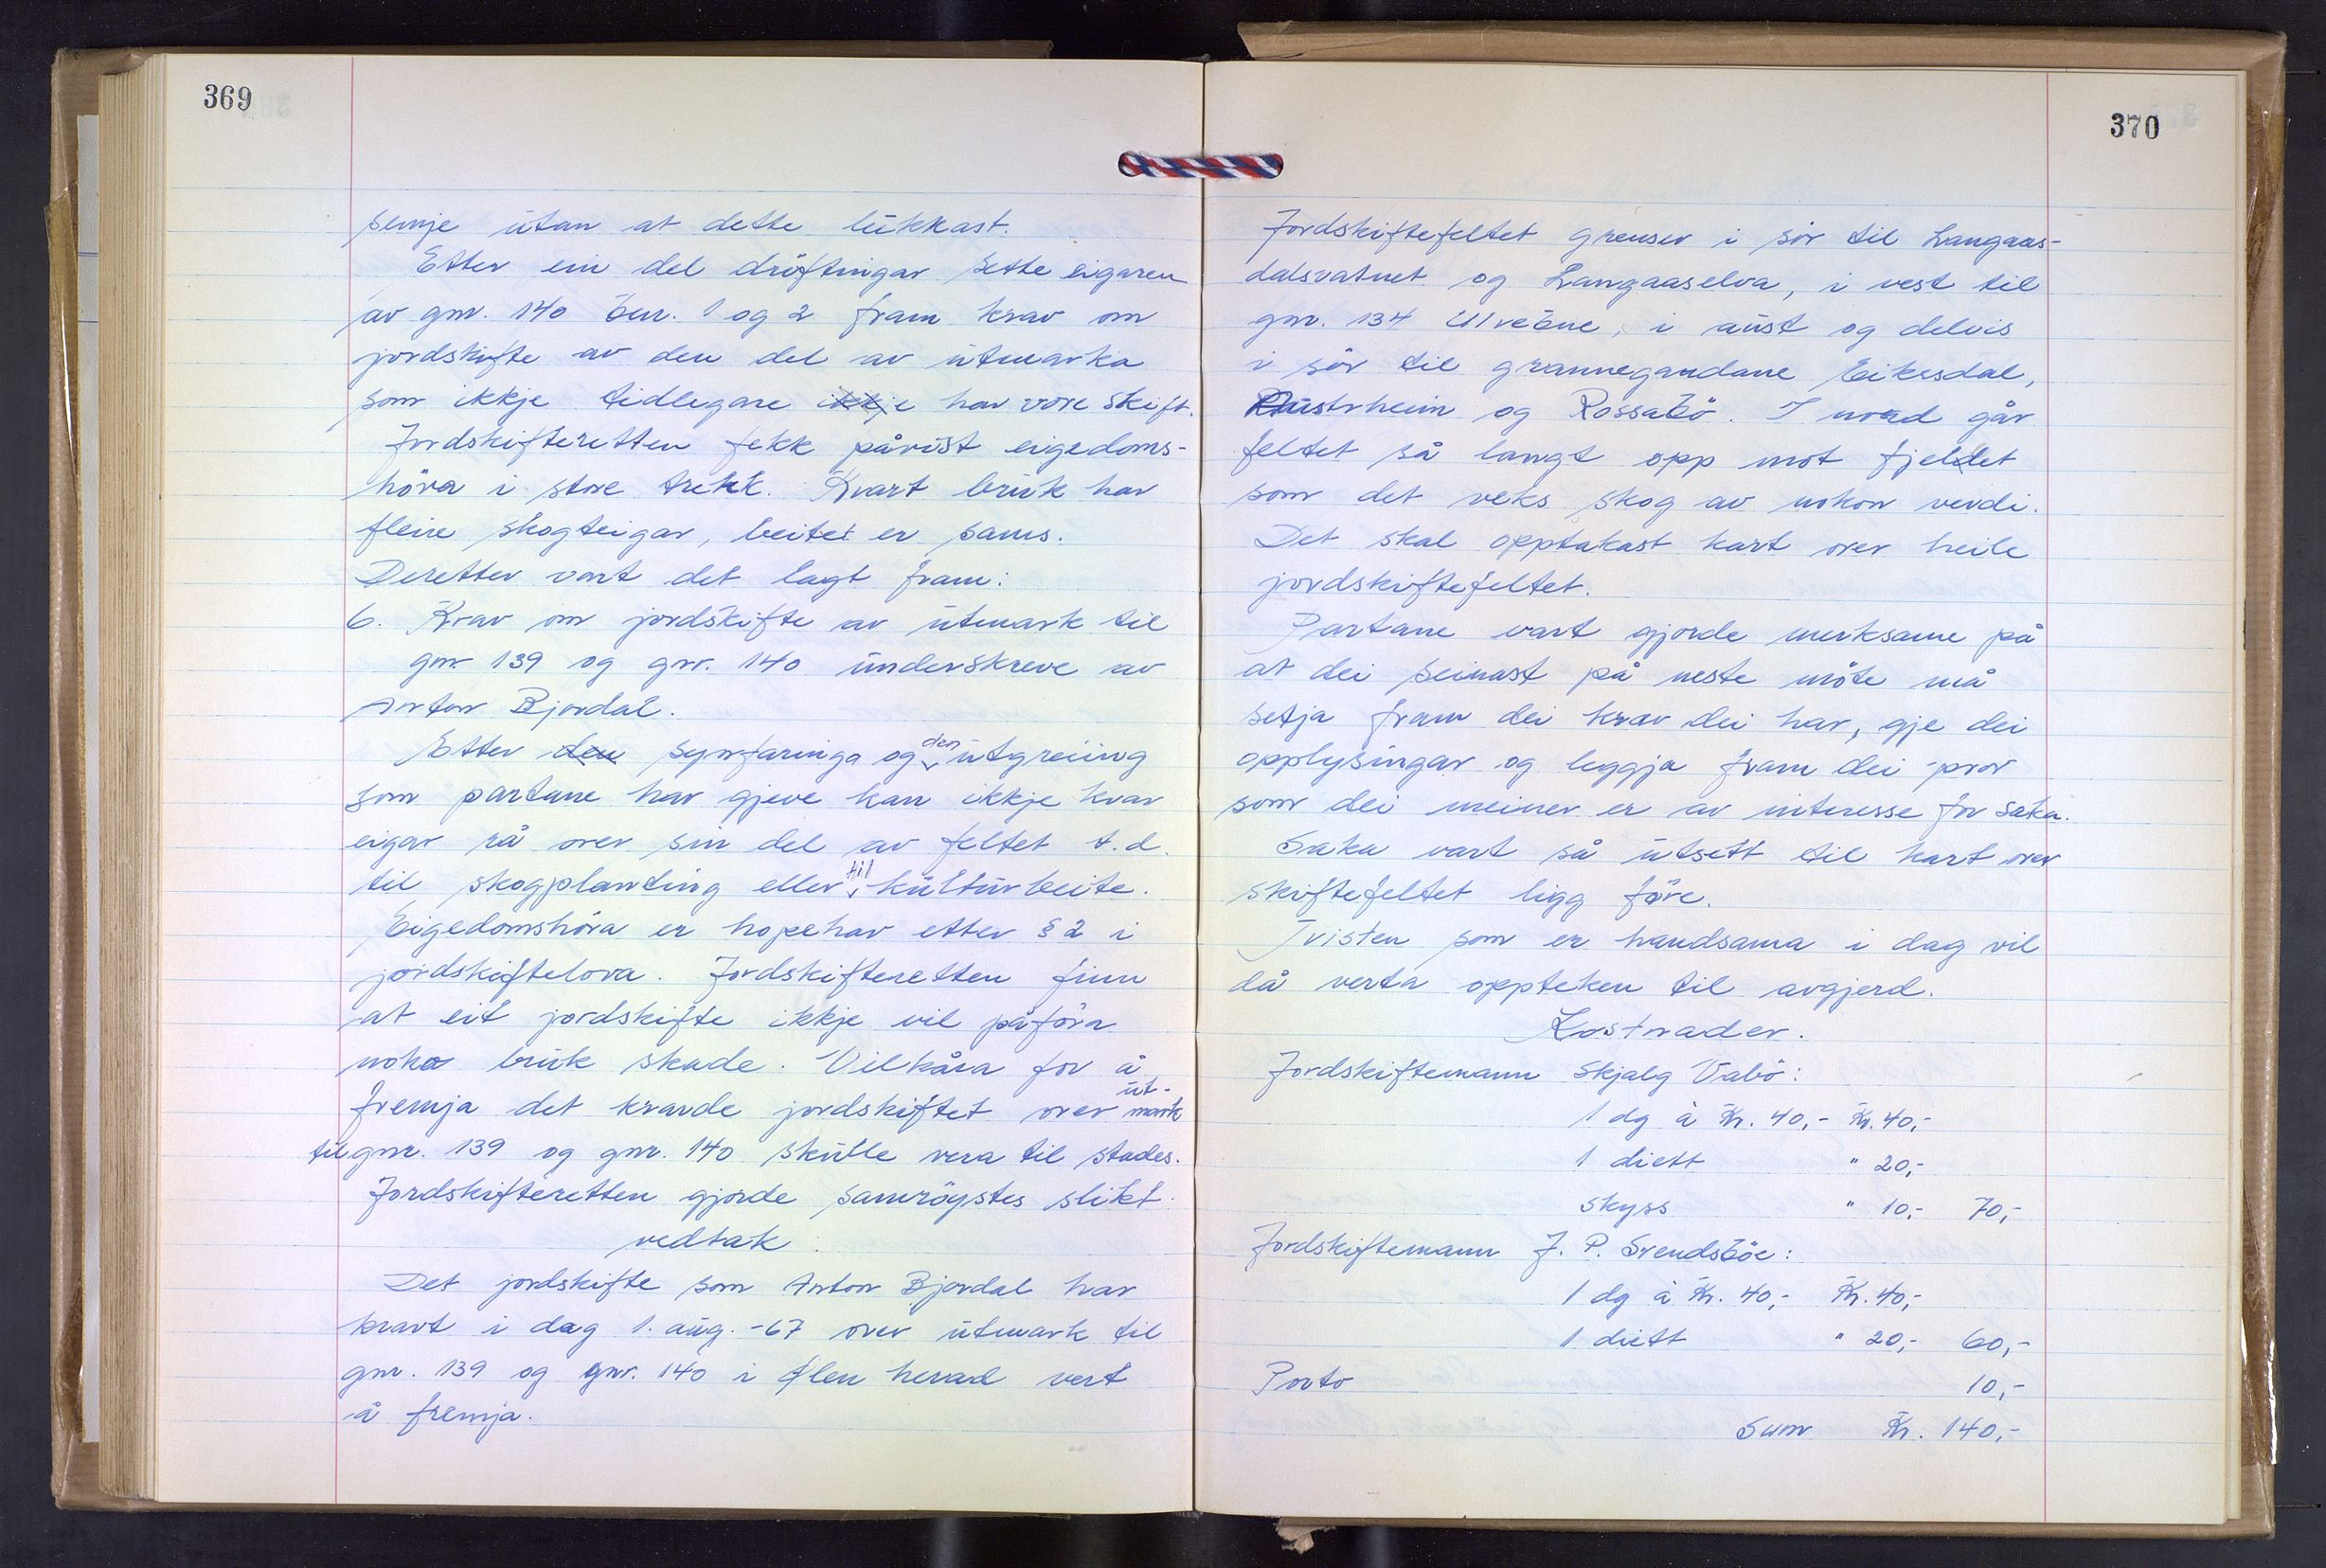 369
semje utan at dette lukkast.
Etter ein del drøftingar sette eigaren
av gnr. 140 bnr. 1 og 2 fram krav om
jordskifte av den del av utmarka
som ikkje tidlegare ikkje har vore skift.
Jordskifteretten fekk påvist eigedoms-
höva i store trekk. Kvart bruk har
fleire skogteigar, beitet er sams.
Deretter vart det lagt fram:
6. Krav om jordskifte av utmark til
gnr 139 og gnr. 140 underskreve av
Anton Bjordal.
Etter den synfaringa og den utgreiing
som partane har gjeve kan ikkje kvar
eigar rå over sin del av feltet t.d.
til skogplanting eller til kulturbeite.
Eigedomshöva er hopehav etter § 2 i
jordskiftelova. Jordskifteretten finn
at eit jordskifte ikkje vil påföra
noko bruk skade. Vilkåra for å
fremja det kravde jordskiftet over ut-mark
til gnr. 139 og gnr. 140 skulle vera til stades.
Jordskifteretten gjorde samröystes slikt
vedtak:
Det jordskifte som Anton Bjordal har
kravt i dag 1. aug. -67 over utmark til
gnr. 139 og gnr. 140 i Ølen herad vert
å fremja.
370
Jordskiftefeltet grenser i sör til Langaas-
dalsvatnet og Langaaselva, i vest til
gnr. 134 Ulvebne, i aust og delvis
i sör til grannegardane Eikesdal,
Austrheim og Rossabö. I nord går
feltet så langt opp mot fjellet
som det veks skog av nokon verdi.
Det skal opptakast kart over heile
jordskiftefeltet.
Partane vart gjorde merksame på
at dei seinast på neste möte må
setja fram dei krav dei har, gje dei
opplysingar og leggja fram dei prov
som dei meiner er av interesse for saka.
Saka vart så utsett til kart over
skiftefeltet ligg före.
Tvisten som er handsama i dag vil
då verta oppteken til avgjerd.
Kostnader.
Jordskiftemann Skjalg Vabö:
1 dg à Kr. 40,- Kr. 40,-
1 diett " 20,-
skyss " 10,- 70,-
Jordskiftemann J. P. Svendsböe:
1 dg à Kr. 40,- Kr. 40,-
1 diett " 20,- 60,-
Porto 10,-
Sum Kr. 140,-